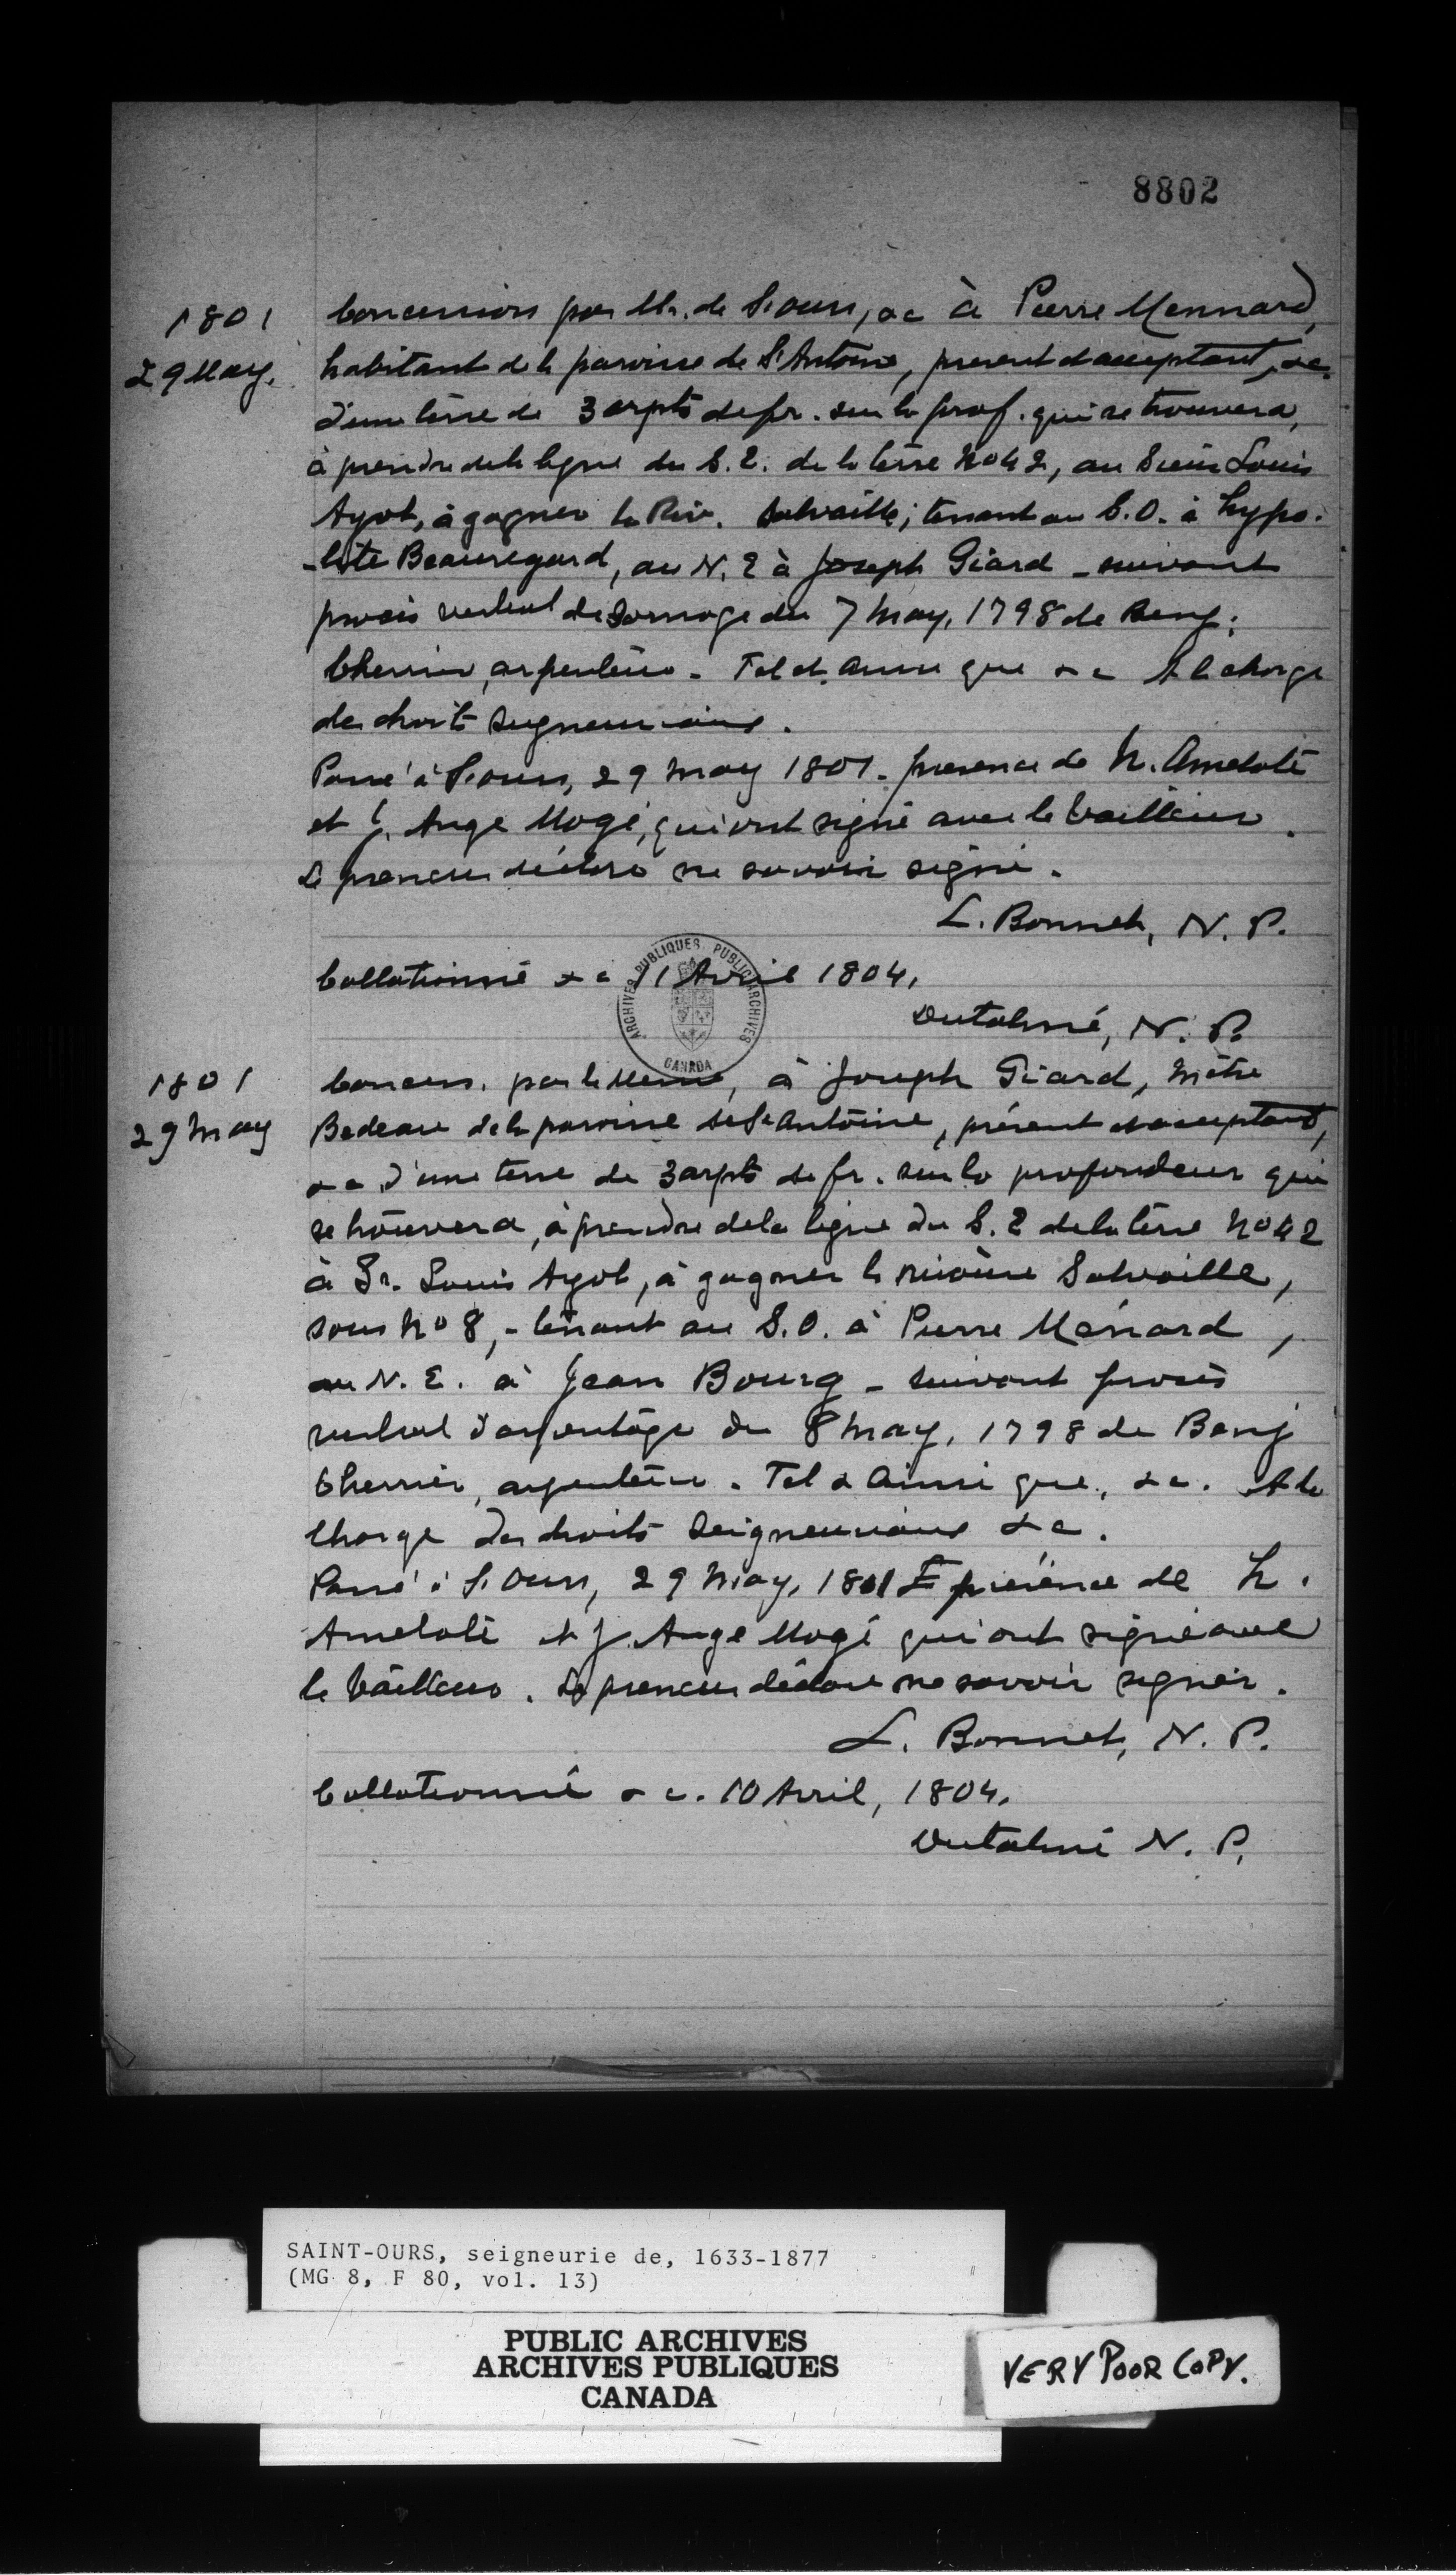 8802
1801
29 May.
Concession par Mr. de St. Ours, &c à Pierre Mennard,
habitant de la paroisse de St Antoine, present et acceptant, &c.
d'une terre de 3 arpts de fr. sur la prof. qui se trouvera,
à prendre de la ligne du S. E. de la terre No 42, au Sieur Louis
Ayot, à gagner la Riv. Salvaille; tenant au S.O. à Hypo-
-lite Beauregard, au N. E à Joseph Giard - suivant
procès verbal de bornage du 7 May, 1798 de Benj.
Cherrier, arpenteur. Tel et ainsi que &c A la charge
des droits seigneuriaux.
Passé à St. Ours, 29 May 1801. presence de N. Amelotte
et J. Ange Mogé, qui ont signé avec le bailleur.
Le preneur déclare ne savoir signé.
L. Bonnet, N. P.
Collationné &c 11 Avril 1804.
Dutalmé, N. P.
ARCHIVES PUBLIQUES PUBLIC ARCHIVES
CANADA
1801
29 May
Concess. par le Meme, à Joseph Giard, Mètre
Bedeau de la paroisse de St Antoine, présent et acceptant,
&c d'une terre de 3 arpts de fr. sur la profondeur qui
se trouvera, à prendre de la ligne du S. E de la terre No 42
à Sr. Louis Ayot, à gagner la rivière Salvaille,
sous No 8, - tenant au S.O. à Pierre Ménard,
au N. E. à Jean Bourg - suivant procès
verbal d'arpentage du 8 May, 1798 de Benj
Cherrier, arpenteur. Tel & Ainsi que, &c. A la
charge des droits Seigneuriaux &c.
Passé à St. Ours, 29 May, 1801 présence de N.
Amelotte et J. Ange Mogé qui ont signé avec
le bailleur. Le preneur déclare ne savoir signer.
L. Bonnet, N. P.
Collationné &c. 10 Avril, 1804.
Dutalmé N. P.
SAINT-OURS, seigneurie de, 1633-1877
(MG 8, F 80, vol. 13)
PUBLIC ARCHIVES
ARCHIVES PUBLIQUES
CANADA
VERY POOR COPY.